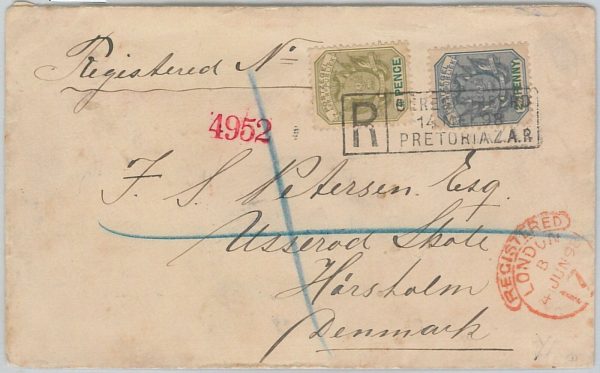 Registered No
PENCE
PENNY
4952
R
14 MEI 98
PRETORIA Z.A.R
F. S. Petersen Esq.
Usserod Skole
Hörsholm
Denmark
REGISTERED
LONDON
B
4 JUN 9
7